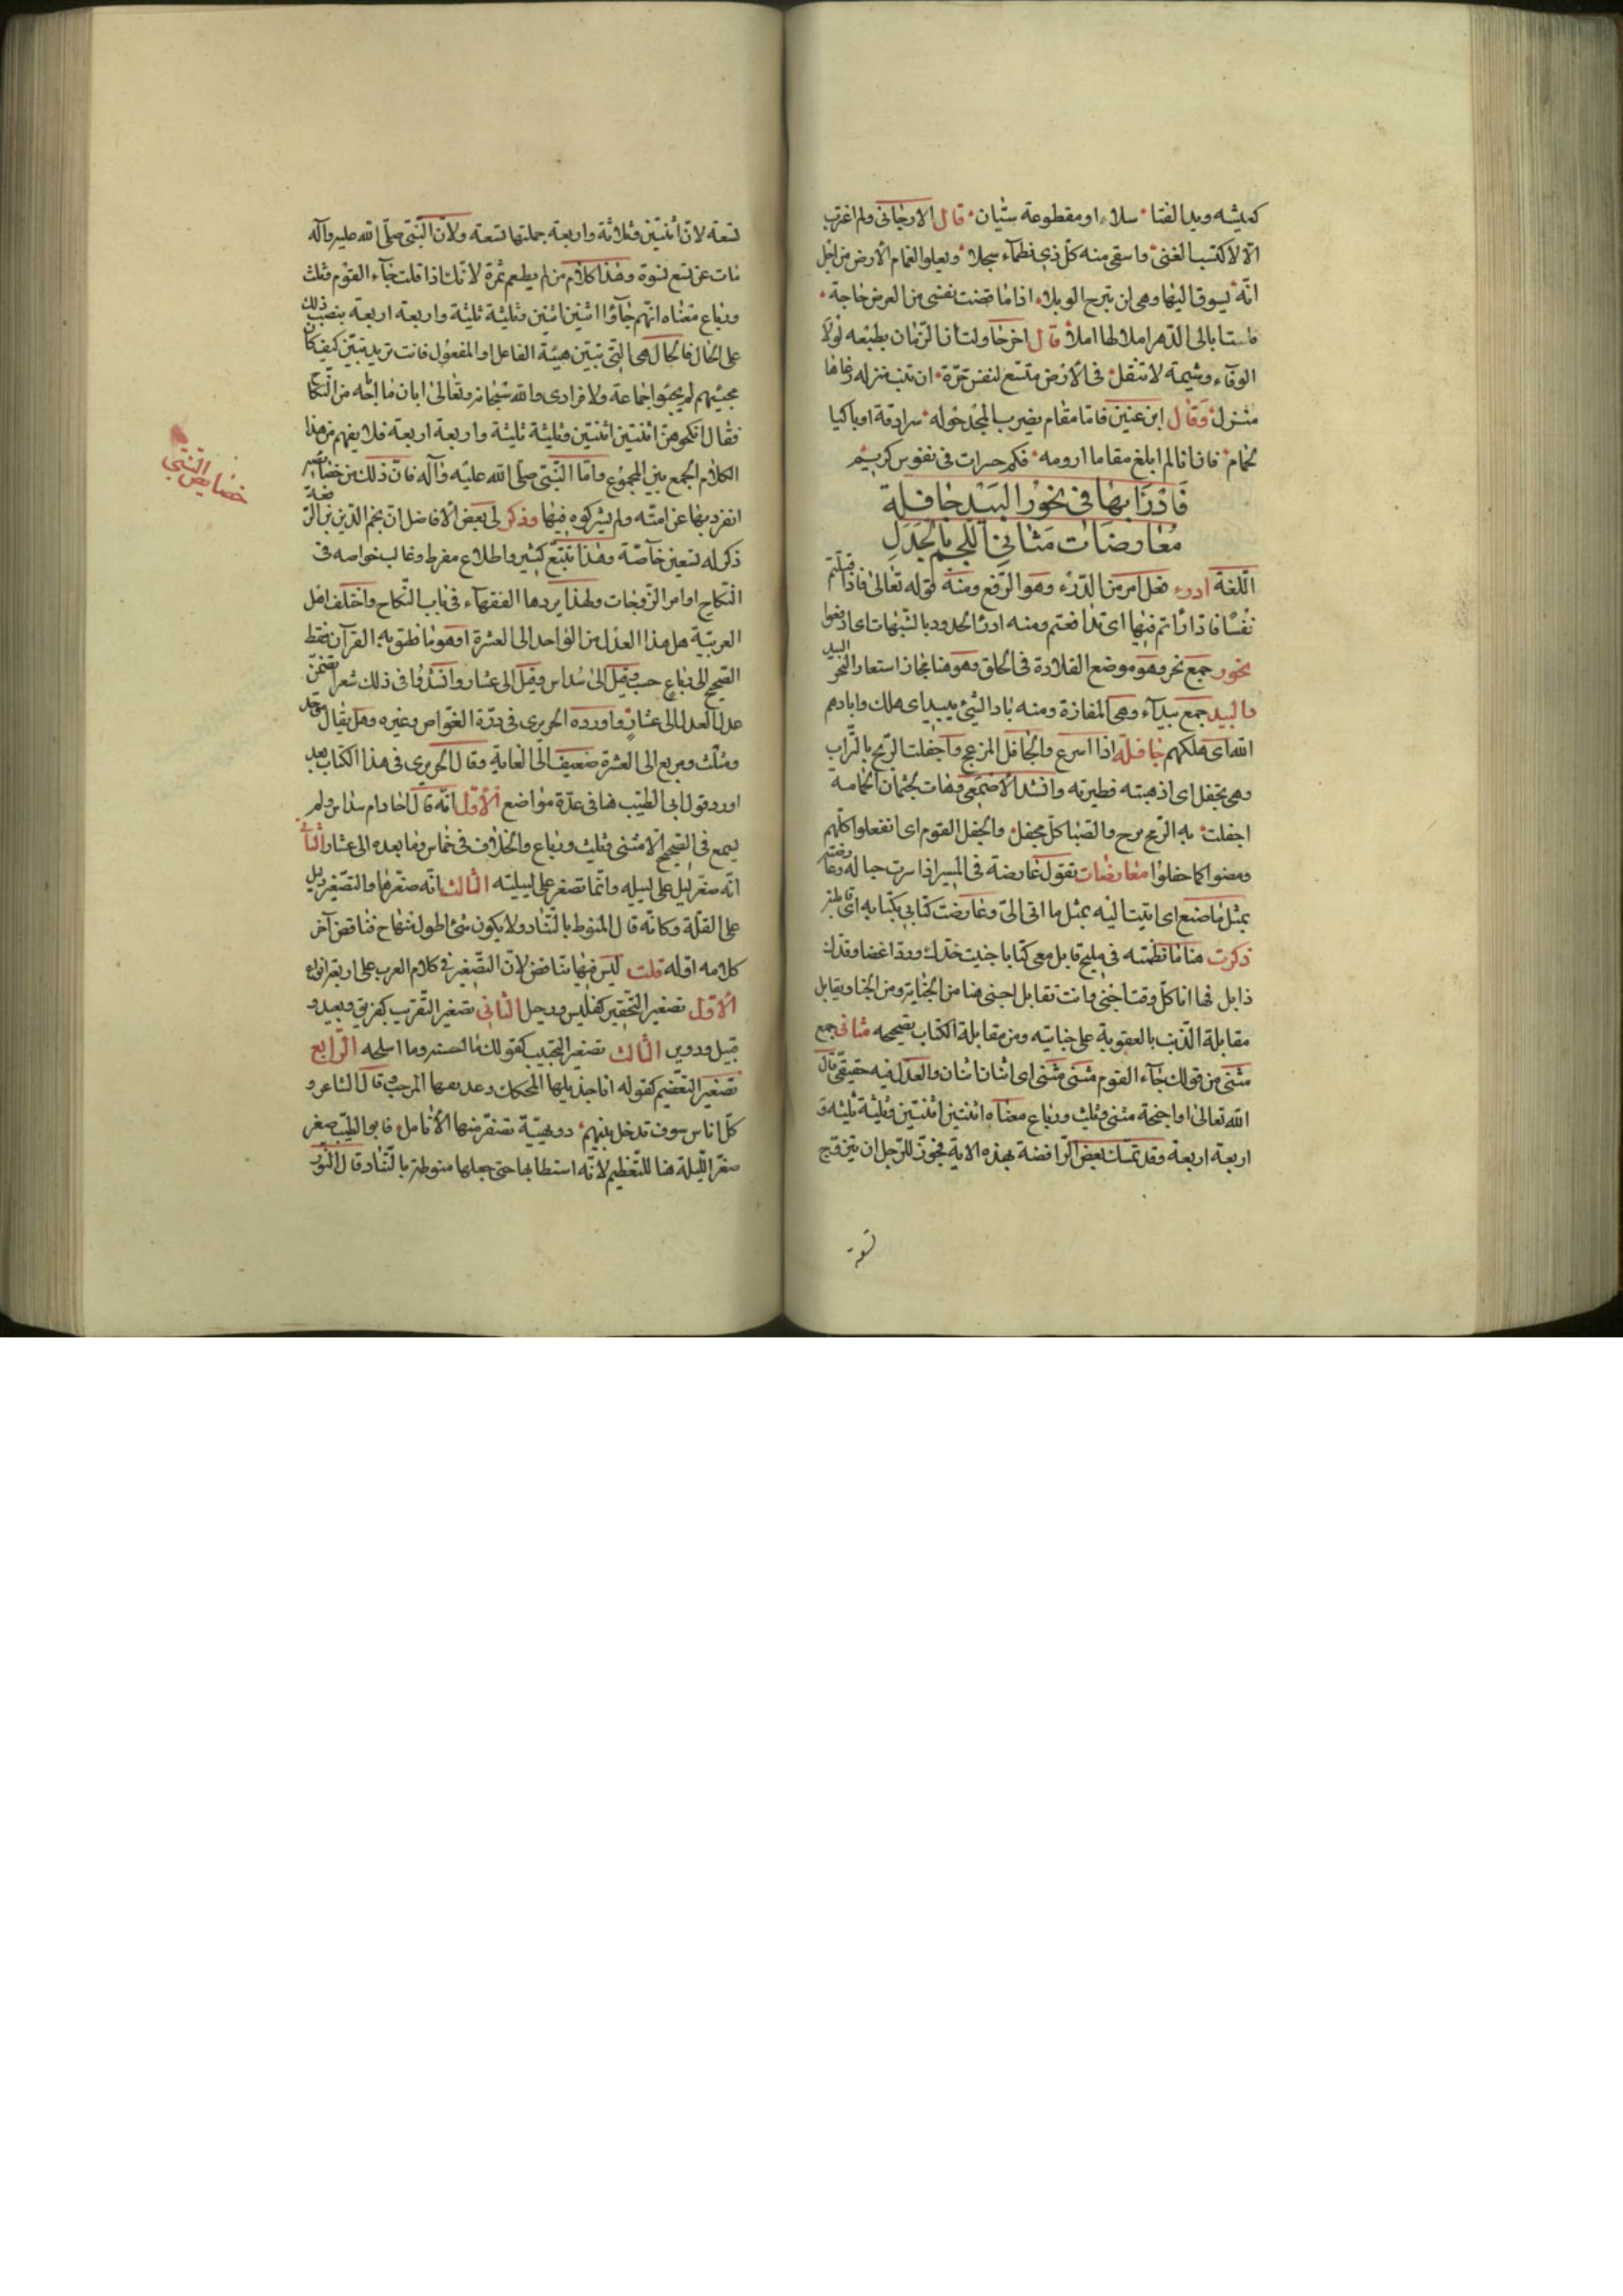 كميشه ويدا لفتا سلاء او مقطوعة ستيان قال الارجانى ولم اغترب
الا لاكتسب الغنى واسقى منه كل ذى ظماء سجلا ويعلوا الغمام الأرض من اجل
انه يسوق اليها وهى لن تبرح الوبلا اذا ما قضت نفسى من العز حاجة
فلست ابالى الدهر املا لها املا قال اخر حاولت انا الزمان بطبعه لولا
الوفاء وشيمة لا تنقل فى الأرض متسع لنفس حرة ان تنب منزله رعاها
منزل وقال ابن عنين فاما مقام يضرب المجد حوله سرادقه او باكيا
لحمام فان انا لم ابلغ مقاما ارومه فكم حسرات فى نفوس كريم
فادرا بها فى نحور البيد جافلة
معارضات مثانى اللجم بالجدل
اللغة ادرء فعل امر من الدرء وهو الرفع ومنه قوله تعالى فاذا قتلتم
نفسا فادارأتم فيها اى تدافعتم ومنه ادرؤا الحدود بالشبهات اى ادفعوا
نحور جمع نحر وهو موضع القلادة فى الحلق وهو هنا مجاز استعار النحر للبيد
والبيد جمع بيداء وهى المفازة ومنه باد الشئ يبيد اى هلك وابادهم
الله اى هلكهم جافلة اذا اسرع والجافل المزعج واجفلت الريح بالتراب
وهى تجفل اى اذهبته فطيرته وانشد الاصمعى وهات كجثمان الحامسة
اجفلت به الريح والصبا كل مجفل وانجفل القوم اى انفعلوا كلهم
ومضوا كما جفلوا معارضات تقول عارضة فى المسير اذا سرت حياله وعارضته
بمثل ما صنع اى اتيت اليه بمثل ما اتى الى وعارضت كتابى بكتابه اى قابلته
ذكرت هنا ما نظمته فى مليح قابل معى كتابا جنيت خدك وردا غضا وقدك
ذابل فها انا كل وقت اجنى وانت تقابل اجنى هنا من الجناية ومن الجنا ويقابل
مقابلة الذنب بالعقوبة على جنايته ومن مقابلة الكتاب بتصحيحه مثانى جمع
مثنى من قولك جاء القوم مثنى مثنى اى اثنان اثنان والعدل فيه حقيقى قال
الله تعالى اولى اجنحة مثنى وثلث ورباع معناه اثنتين اثنتين وثلثة ثلثة و
اربعة اربعة وقد تمسك بعض الرافضة بهذه الاية فجوز للرجل ان يتزوج
تسعة
تسعة لان اثنتين وثلاثة واربعة جملتها تسعة ولان النبى صلى الله عليه وآله
مات عن تسع نسوة وهذا كلام من لم يطعم ثمرة لانك اذا قلت جاء القوم وثلث
ورباع معناه انهم جاؤا اثنين اثنين وثلثة ثلثة واربعة اربعة بنصب ذلك
على الحال فالحال هى التى تبين هيئة الفاعل او المفعول فانت تريد تبين كيف كان
مجيئهم لم يجيئوا جماعة ولا فرادى والله سبحانه وتعالى ابان ما اباحه من النكاح
فقال انكحوهن اثنتين اثنتين وثلثة ثلثة واربعة اربعة فلا يفهم من هذا
الكلام الجمع بين المجموع واما النبى صلى الله عليه وآله فان ذلك من خصايصه
انفرد بها عن امته ولم يشركوه فيها وذكر لى بعض الأفاضل ان نجم الدين بن الرفعة
ذكر له تسعين خاصة وهذا تتبع كثير واطلاع مفرط وغالب خواصه فى
النكاح او امر الزوجات ولهذا يردها الفقهاء فى باب النكاح واختلف اهل
العربية هل هذا العدل من الواحد الى العشرة او هو ما نطق به القرآن فقط
الصحيح الى رباع حسب وقيل الى سداس وقيل الى عشار وانشدوا فى ذلك شعرا يتضمن
عدل العدل الى عشار واورده الحريرى فى درة الغواص وغيره وهل يقال موحد
ومثلث ومربع الى العشرة ضعيف الى الغاية وقال الحريرى فى هذا الكتاب بعد
اورد قول ابى الطيب هنا فى عدة مواضع الأول انه قال احاد ام سداس ولم
يسمع فى الصحيح الا مثنى وثلث ورباع والخلاف فى خماس وما بعده الى عشار الثانى
انه صغر ليل على لييله وانما تصغر على لييليه الثالث انه صغرها والتصغير دليل
على القلة وكانه قال المنوط بالتناد ولا يكون شئ اطول منها فناقض آخر
كلامه اوله قلت ليس فيها تناقض لان التصغير فى كلام العرب على اربعة انواع
الأول تصغير التحقير كفليس ورجيل الثانى تصغير التقريب كفريق وبعيد و
قبيل ودوين الثالث تصغير التحبيب كقولك ما احيسنه وما اميلحه الرابع
تصغير التعظيم كقوله انا جذيلها المحكك وعذيقها المرجب وقال الشاعر و
كل اناس سوف تدخل بينهم دويهية تصفر منها الأنامل فابو الطيب صغر
صغر الليلة هنا للتعظيم لانه استطالها حتى جعلها منوطة بالتناد قال
خصايص النبى